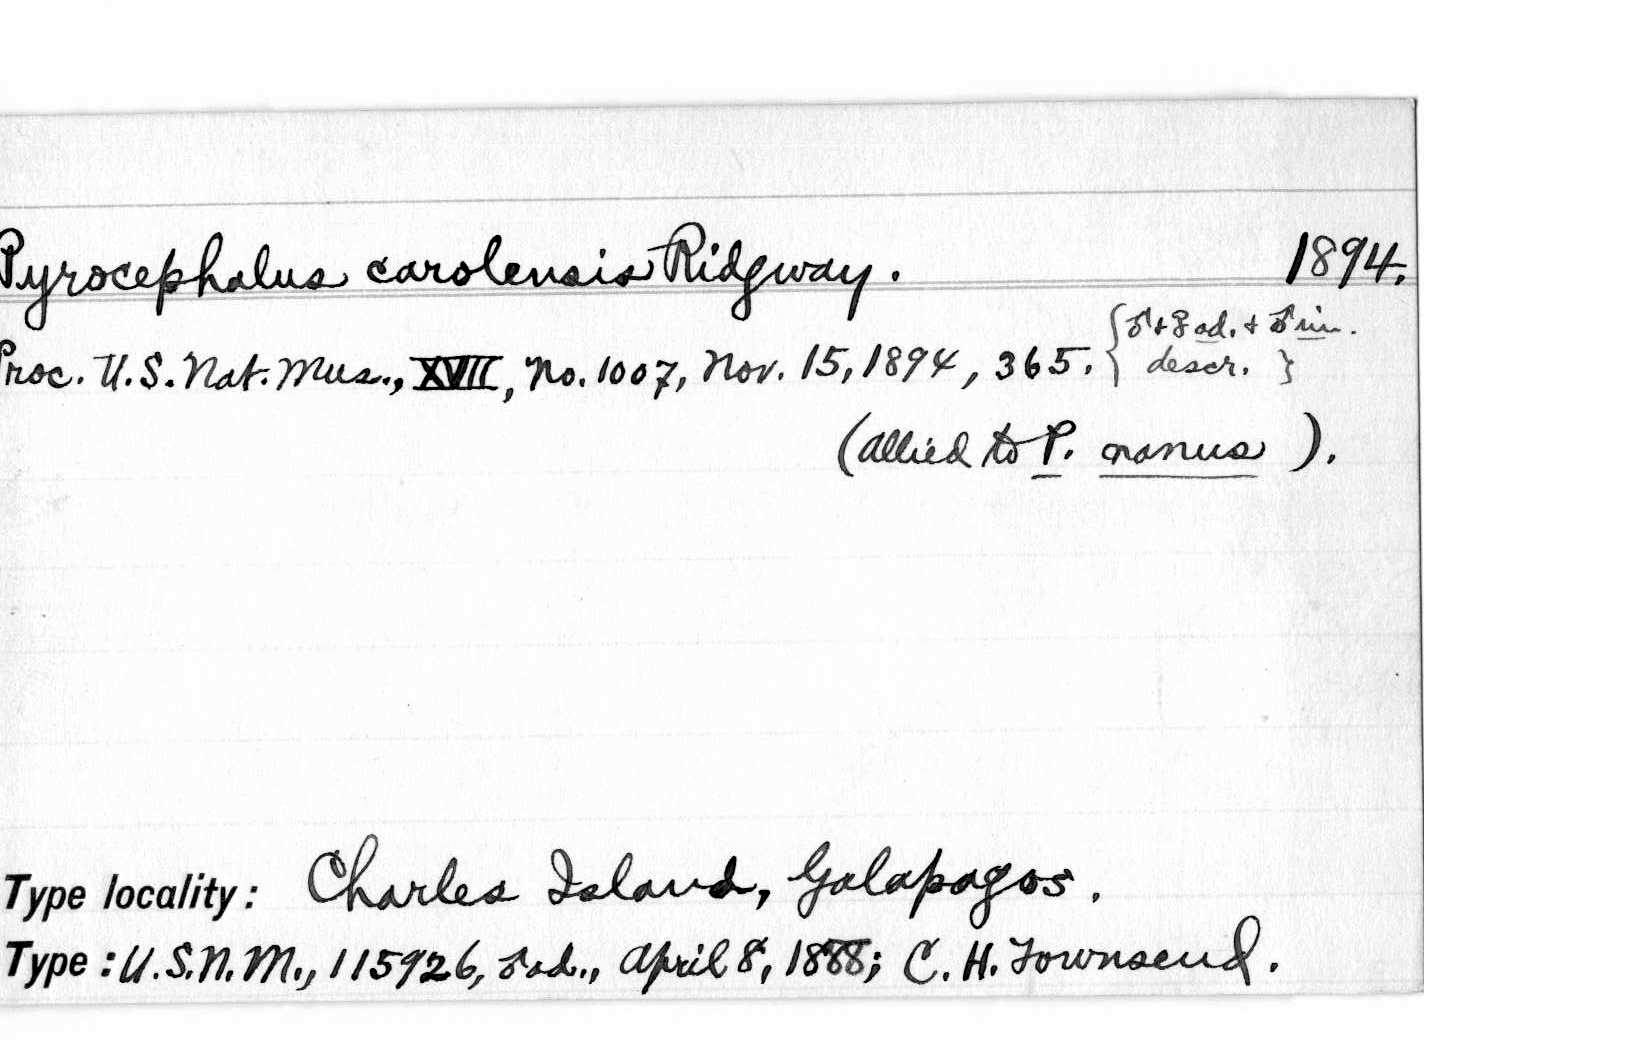 Pyrocephalus carolensis Ridgway. 1894.
Proc. U.S. Nat. Mus., XVII, No. 1007, Nov. 15, 1894, 365. {♂ + ♀ ad. + ♂ im. descr. }
(allied to P. nanus ).
Type locality: Charles Island, Galapagos.
Type: U.S.N.M., 115926, ♂ ad., April 8, 1888; C. H. Townsend.